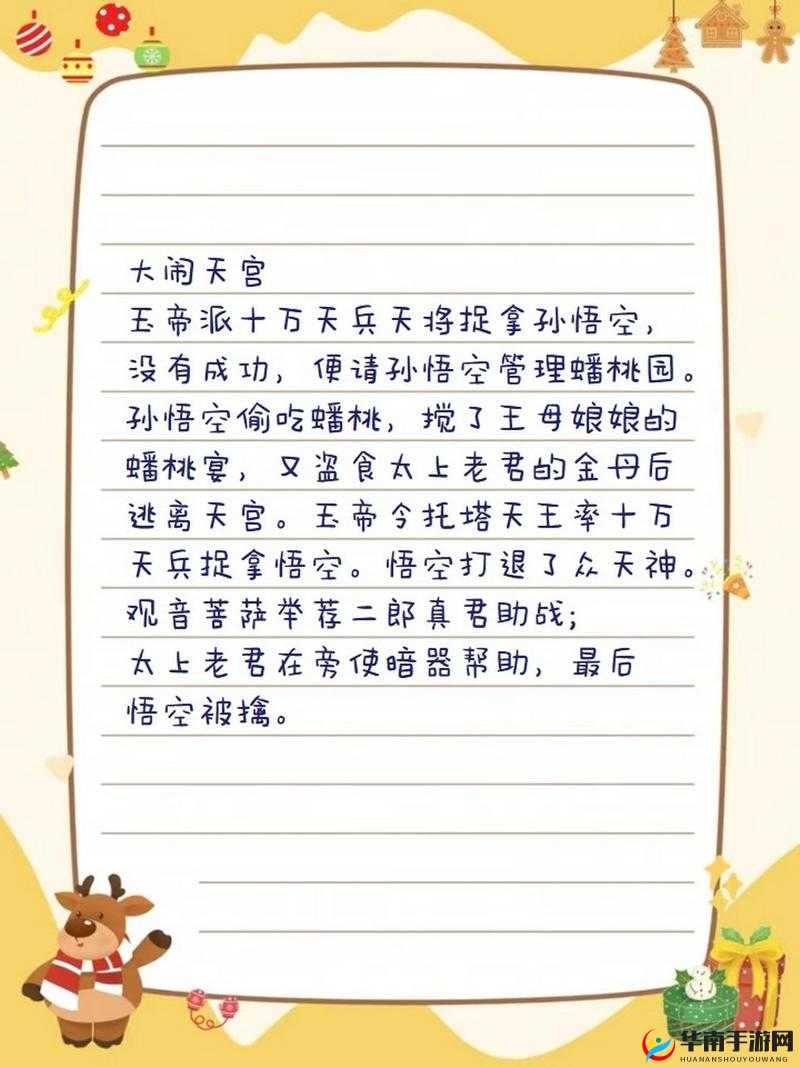 大闹天宫
玉帝派十万天兵天将捉拿孙悟空，
没有成功，便请孙悟空管理蟠桃园。
孙悟空偷吃蟠桃，搅了王母娘娘的
蟠桃宴，又盗食太上老君的金母后
逃离天宫。玉帝令托塔天王率十万
天兵捉拿悟空。悟空打退了众天神。
观音菩萨举荐二郎真君助战；
太上老君在旁使暗器帮助，最后
悟空被擒。
华南手游网
HUANANSHOUYOUWANG